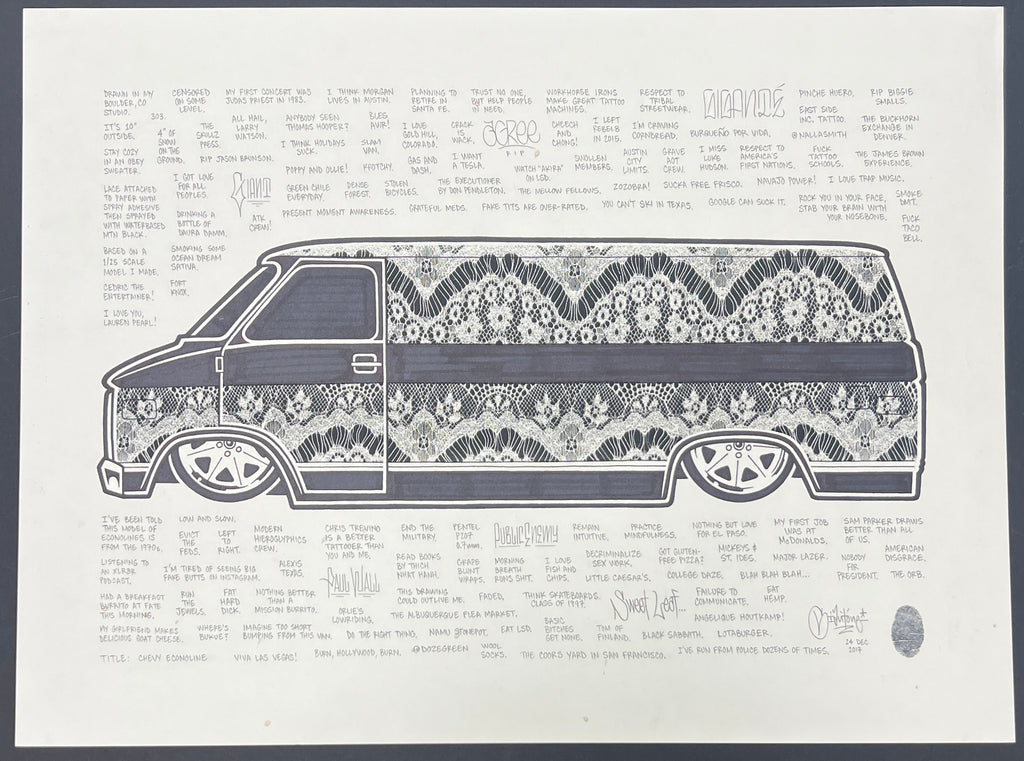 DRAWN IN MY
BOULDER, CO
STUDIO.
303.
CENSORED
ON SOME
LEVEL.
MY FIRST CONCERT WAS
JUDAS PRIEST IN 1983.
I THINK MORGAN
LIVES IN AUSTIN.
PLANNING TO
RETIRE IN
SANTA FE.
TRUST NO ONE,
BUT HELP PEOPLE
IN NEED.
WORKHORSE IRONS
MAKE GREAT TATTOO
MACHINES.
RESPECT TO
TRIBAL
STREETWEAR.
GIGANTE
PINCHE HUERO.
RIP BIGGIE
SMALLS.
IT'S 10°
OUTSIDE.
4" OF
SNOW
ON THE
GROUND.
THE
SKULLZ
PRESS.
ALL HAIL,
LARRY
WATSON.
ANYBODY SEEN
THOMAS HOOPER?
BLES,
AWR!
I LOVE
GOLD HILL,
COLORADO.
CRACK
IS
WACK.
RIP
CHEECH
AND
CHONG!
I LEFT
IN 2015.
I'M CRAVING
CORNBREAD.
BURQUEÑO POR VIDA.
EAST SIDE
INC. TATTOO.
@NALLASMITH
THE BUCKHORN
EXCHANGE IN
DENVER.
STAY COZY
IN AN OBEY
SWEATER.
RIP JASON BRUNSON.
I THINK HOLIDAYS
SUCK.
SLAM
VAN.
GAS AND
DASH.
I WANT
A TESLA.
WATCH "AKIRA"
ON LSD.
SWOLLEN
MEMBERS.
AUSTIN
CITY
LIMITS.
GRAVE
AOT
CREW.
I MISS
LUKE
HUDSON.
RESPECT TO
AMERICA'S
FIRST NATIONS.
FUCK
TATTOO
SCHOOLS.
THE JAMES BROWN
EXPERIENCE.
LACE ATTACHED
TO PAPER WITH
SPRAY ADHESIVE
THEN SPRAYED
WITH WATERBASED
MTN BLACK.
I GOT LOVE
FOR ALL
PEOPLES.
GIANT
POPPY AND OLLIE!
GREEN CHILE
EVERYDAY.
DENSE
FOREST.
STOLEN
BICYCLES.
THE EXECUTIONER
BY DON PENDLETON.
THE MELLOW FELLOWS.
ZOZOBRA!
SUCKA FREE FRISCO.
NAVAJO POWER!
I LOVE TRAP MUSIC.
DRINKING A
BOTTLE OF
ATK
CREW!
PRESENT MOMENT AWARENESS.
GRATEFUL MEDS.
FAKE TITS ARE OVER-RATED.
YOU CAN'T SKI IN TEXAS.
GOOGLE CAN SUCK IT.
ROCK YOU IN YOUR FACE,
STAB YOUR BRAIN WITH
YOUR NOSEBONE.
SMOKE
DMT.
FUCK
TACO
BELL.
BASED ON A
1/25 SCALE
MODEL I MADE.
SMOKING SOME
OCEAN DREAM
SATIVA.
CEDRIC THE
ENTERTAINER!
FORT
KNOX.
I LOVE YOU,
LAUREN PEARL!
I'VE BEEN TOLD
THIS MODEL OF
ECONOLINES IS
FROM THE 1970s.
LOW AND SLOW.
EVICT
THE
FEDS.
LEFT
TO
RIGHT.
MODERN
HIEROGLYPHICS
CREW.
CHRIS TREVINO
IS A BETTER
TATTOOER THAN
YOU AND ME.
END THE
MILITARY.
PENTEL
P207
0.7mm.
PUBLIC ENEMY
REMAIN
INTUITIVE.
PRACTICE
MINDFULNESS.
NOTHING BUT LOVE
FOR EL PASO.
MY FIRST JOB
WAS AT
McDONALDS.
SAM PARKER DRAWS
BETTER THAN ALL
OF US.
LISTENING TO
AN XLR8R
PODCAST.
I'M TIRED OF SEEING BIG
FAKE BUTTS ON INSTAGRAM.
ALEXIS
TEXAS.
PAUL WALL
READ BOOKS
BY THICH
NHAT HANH.
GRAZE
BLUNT
WRAPS.
MORNING
BREATH
RONS SHIT.
I LOVE
FISH AND
CHIPS.
DECRIMINALIZE
SEX WORK.
GOT GLUTEN-
FREE PIZZA?
MICKEYS &
ST. IDES.
MAJOR LAZER.
NOBODY
FOR
PRESIDENT.
AMERICAN
DISGRACE.
THE ORB.
LITTLE CAESAR'S.
COLLEGE DAZE.
BLAH BLAH BLAH...
HAD A BREAKFAST
BURRITO AT FATE
THIS MORNING.
RUN
THE
JEWELS.
FAT
HARD
DICK.
NOTHING BETTER
THAN A
MISSION BURRITO.
ORLIE'S
LOWRIDING.
THIS DRAWING
COULD OUTLIVE ME.
FADED.
THINK SKATEBOARDS.
CLASS OF 1997.
Sweet Leaf...
FAILURE TO
COMMUNICATE.
EAT
HEMP.
ANGELIQUE HOUTKAMP!
THE ALBUQUERQUE FLEA MARKET.
MY GIRLFRIEND MAKES
DELICIOUS GOAT CHEESE.
WHERE'S
BUKUE?
IMAGINE TOO SHORT
BUMPING FROM THIS VAN.
DO THE RIGHT THING.
NAMU STONEPOT.
EAT LSD.
BASIC
BITCHES
GET NONE.
TOM OF
FINLAND.
BLACK SABBATH.
LOTABURGER.
24 DEC
2017
TITLE: CHEVY ECONOLINE
VIVA LAS VEGAS!
BURN, HOLLYWOOD, BURN.
@DOZEGREEN
WOOL
SOCKS.
THE COORS YARD IN SAN FRANCISCO.
I'VE RUN FROM POLICE DOZENS OF TIMES.